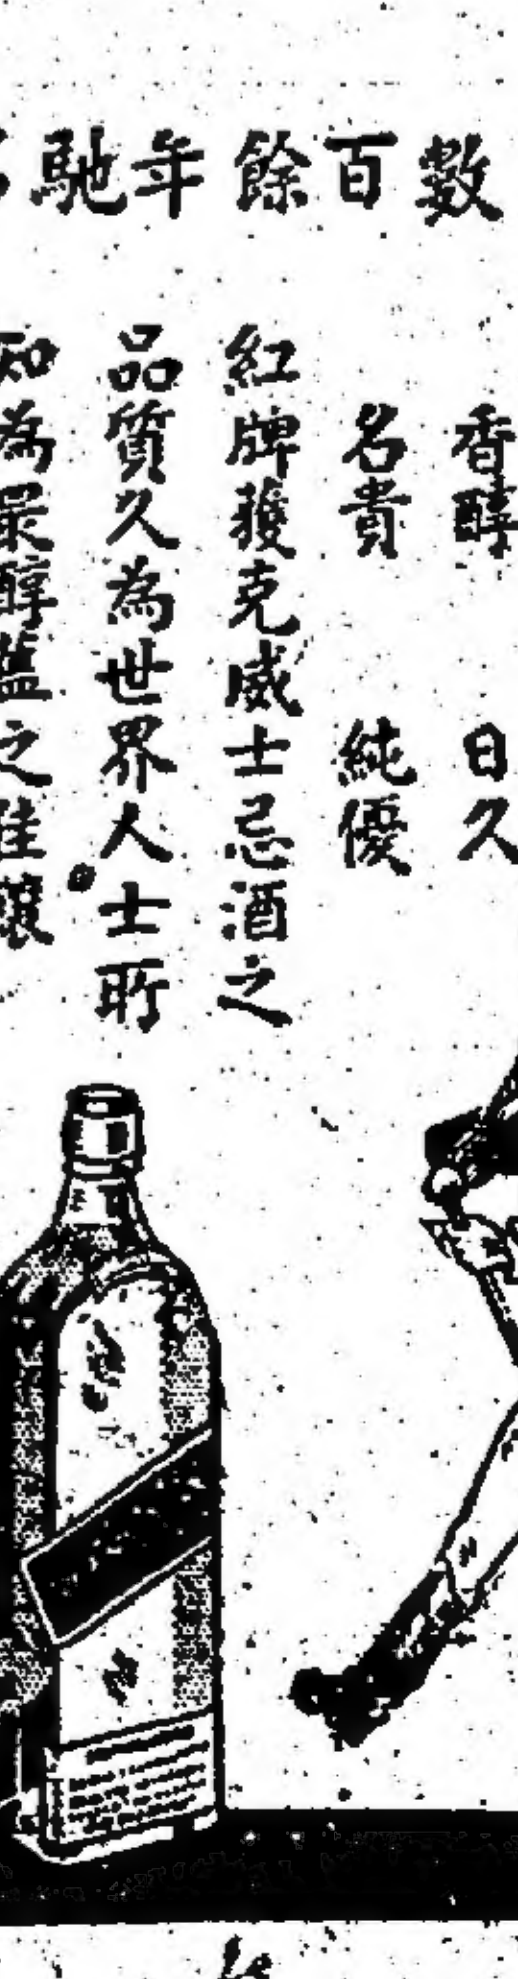 數百餘年馳
香醇　日久
名貴　純優
紅牌獲克威士忌酒之
品質久為世界人士所
知為最醇藍之佳釀